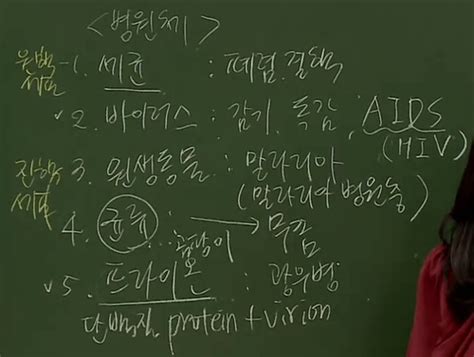 <병원체>
원핵세포 - 1. 세균 : 폐렴. 결핵
✓2. 바이러스 : 감기. 독감 AIDS
(HIV)
진핵세포 3. 원생동물 : 말라리아
(말라리아 병원충)
4. 균류 : 곰팡이 → 무좀
✓5. 프라이온 : 광우병
단백질 protein + virion